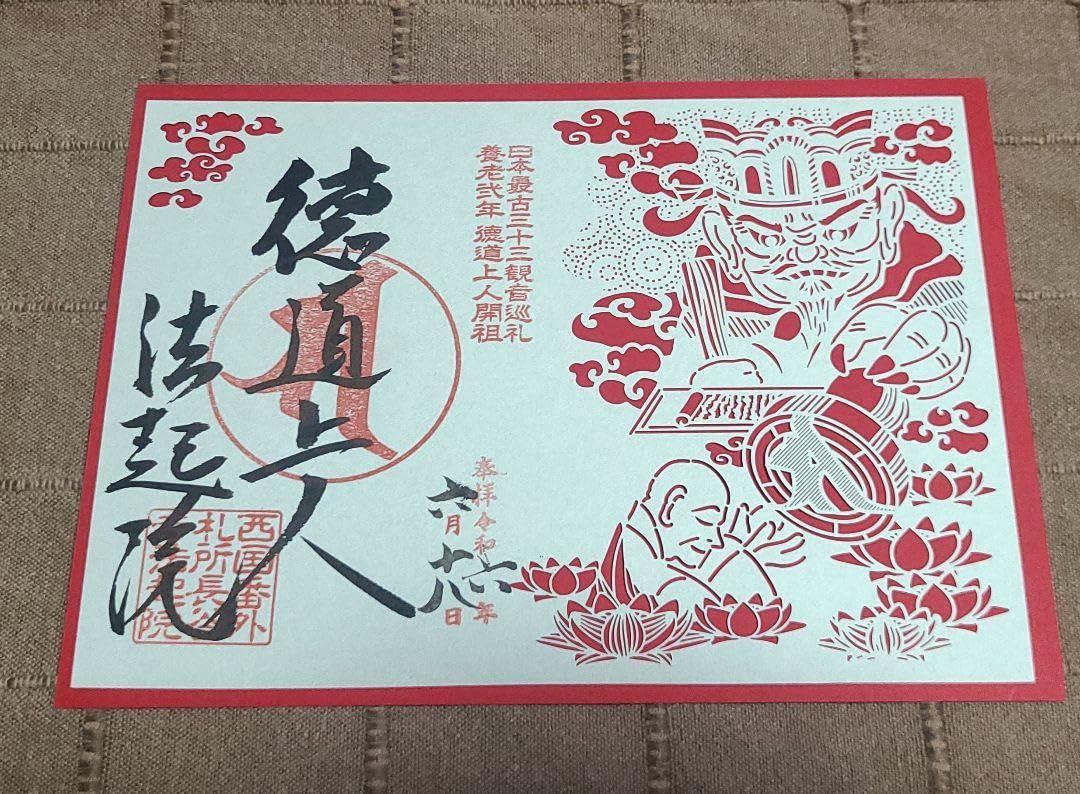 日本最古三十三観音巡礼
養老弐年 徳道上人開祖
奉拝 令和六年
六月十八日
徳道上人
法起院
西国番外
札所長谷